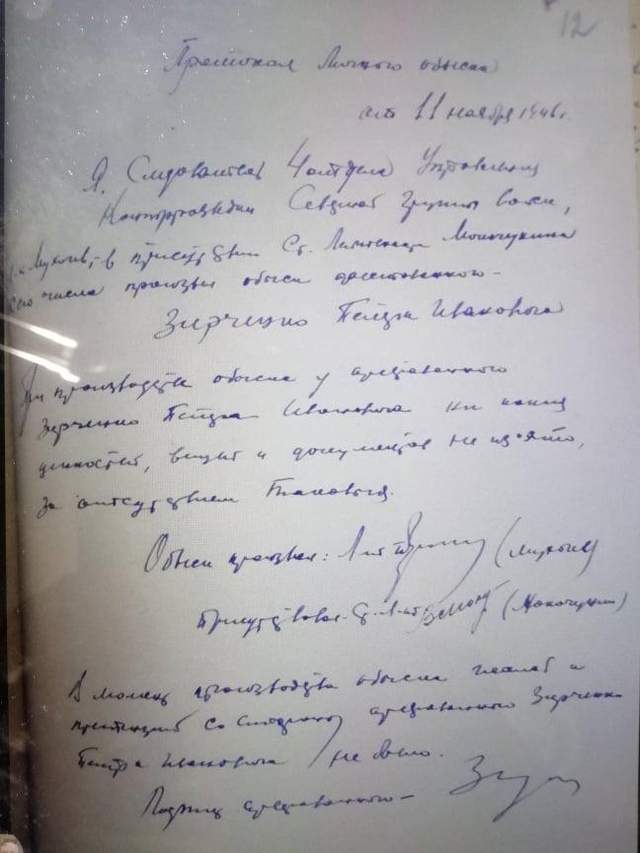 12
Протокол личного обыска
от 11 ноября 1946 г.
Я. Следователь 4 отдела Управления
Контрразведки Северной Группы Войск,
в присутствии Ст. Лейтенанта Мокочунина
сего числа произвел обыск арестованного –
Зирченко Петра Ивановича
При производстве обыска у арестованного
Зирченко Петра Ивановича ни каких
ценностей, вещей и документов не изъято,
за отсутствием таковых.
Обыск произвел: Лит
Присутствовал: Ст. Лит (Мокочунин)
В момент производства обыска жалоб и
претензий со стороны арестованного Зирченко
Петра Ивановича не было.
Подпись арестованного –